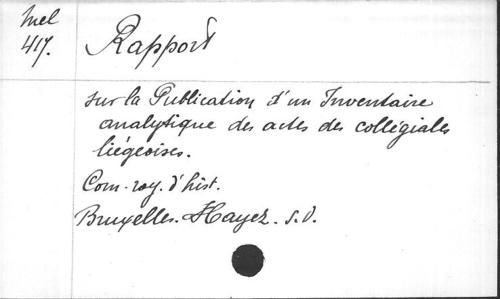 Mel
417.
Rapport
sur la Publication d'un Inventaire
analytique des actes des collégiales
liégeoises.
Com. roy. d'hist.
Bruxelles. Hayez. s.d.